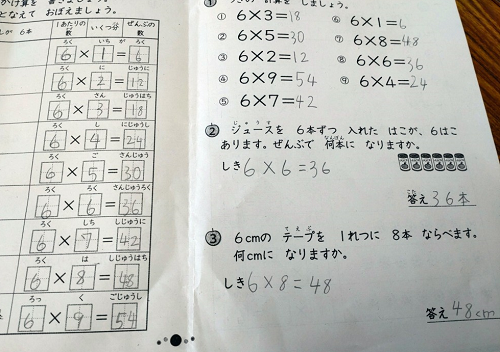 かけ算を
となえて おぼえましょう。
6本
1あたりの数 いくつ分 ぜんぶの数
ろく いち が ろく
6×1=6
ろく に じゅうに
6×2=12
ろく さん じゅうはち
6×3=18
ろく し にじゅうし
6×4=24
ろく ご さんじゅう
6×5=30
ろく ろく さんじゅうろく
6×6=36
ろく しち しじゅうに
6×7=42
ろく は しじゅうはち
6×8=48
ろっ く ごじゅうし
6×9=54
① しましょう。
① 6×3=18
② 6×5=30
③ 6×2=12
④ 6×9=54
⑤ 6×7=42
⑥ 6×1=6
⑦ 6×8=48
⑧ 6×6=36
⑨ 6×4=24
② ジュースを 6本ずつ 入れた はこが、6はこ
あります。ぜんぶで 何本に なりますか。
しき 6×6=36
答え 36本
③ 6cmの テープを 1れつに 8本 ならべます。
何cmに なりますか。
しき 6×8=48
答え 48cm